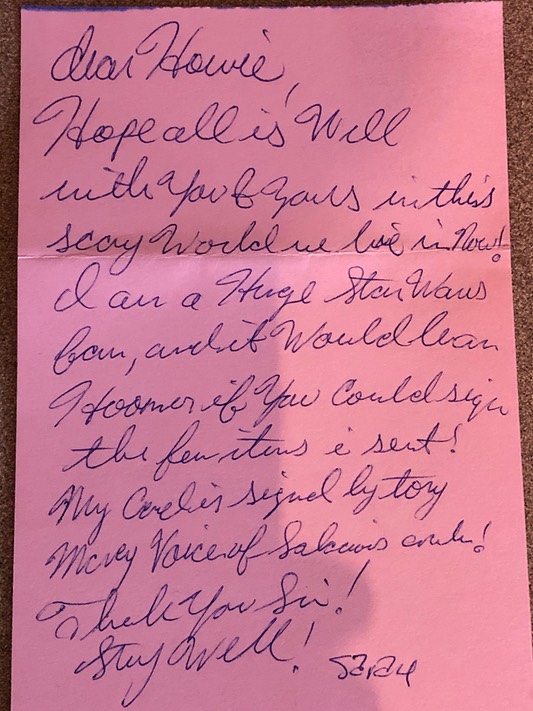 Dear Howie,
Hope all is Well
with You & Yours in this
scary World we live in Now!
I am a Huge Star Wars
fan, and it Would be an
if You Could sign
the few items i sent!
My Card is signed by tony
Voice of Salacious
Thank You Sir!
Stay Well!